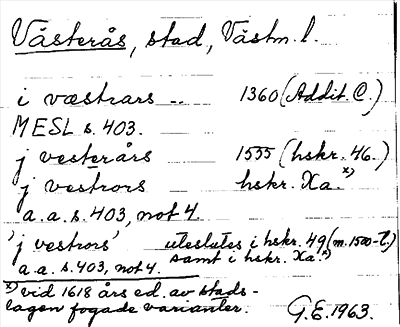 Västerås, stad, Västm. l.
i væstrars -- 1360 (Addit. C.)
MESL s. 403.
j vesterårs 1555 (hskr. 46.)
j vestrors hskr. Xa. x)
a.a. s. 403, not 4.
'j vestrors' uteslutes i hskr. 49 (m. 1500-t.)
samt i hskr. Xa. x)
a.a. s. 403, not 4.
x) vid 1618 års ed. av stads-
lagen fogade varianter.
G.E. 1963.